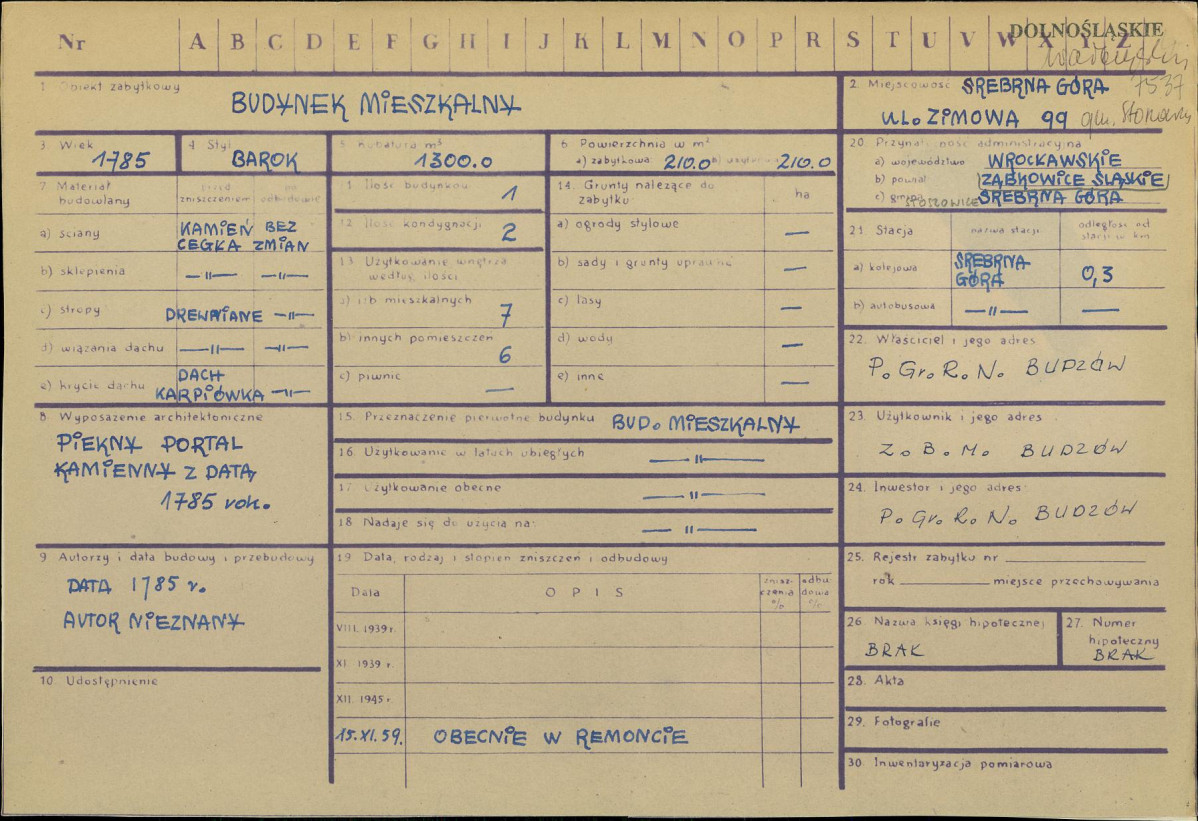 Nr A B C D E F G H I J K L M N O P R S T U V W X Y Z
DOLNOŚLĄSKIE
7537
1. Obiekt zabytkowy
BUDYNEK MIESZKALNY
2. Miejscowość SREBRNA GÓRA
UL. ZIMOWA 99 gm. Stoszowice
3. Wiek
1785
4. Styl
BAROK
5. Kubatura m³
1300.0
6. Powierzchnia w m²
a) zabytkowa 210.0 b) użytkowa 210.0
7. Materiał budowlany
przed zniszczeniem
po odbudowie
a) ściany
KAMIEŃ CEGŁA
BEZ ZMIAN
b) sklepienia —"— —"—
c) stropy DREWNIANE —"—
d) wiązania dachu —"— —"—
e) krycie dachu DACH KARPIÓWKA —"—
11. Ilość budynków 1
12. Ilość kondygnacji 2
13. Użytkowanie wnętrza według ilości
a) izb mieszkalnych 7
b) innych pomieszczeń 6
c) piwnic —
14. Grunty należące do zabytku
ha
a) ogrody stylowe —
b) sady i grunty uprawne —
c) lasy —
d) wody —
e) inne —
20. Przynależność administracyjna
a) województwo WROCŁAWSKIE
b) powiat (ZĄBKOWICE ŚLĄSKIE)
c) gmina STOSZOWICE SREBRNA GÓRA
21. Stacja
nazwa stacji
odległość od stacji w km
a) kolejowa SREBRNA GÓRA 0,3
b) autobusowa —"— —
22. Właściciel i jego adres
P. Gr. R. N. BUDZÓW
8. Wyposażenie architektoniczne
PIEKNY PORTAL
KAMIENNY Z DATĄ
1785 rok.
15. Przeznaczenie pierwotne budynku BUD. MIESZKALNY
16. Użytkowanie w latach ubiegłych —"—
17. Użytkowanie obecne —"—
18. Nadaje się do użycia na: —"—
23. Użytkownik i jego adres
Z. B. M. BUDZÓW
24. Inwestor i jego adres
P. Gr. R. N. BUDZÓW
9. Autorzy i data budowy i przebudowy
DATA 1785 r.
AUTOR NIEZNANY
10. Udostępnienie
19. Data, rodzaj i stopień zniszczeń i odbudowy
Data
OPIS
zniszczenia %
odbudowa %
VIII. 1939 r.
XI. 1939 r.
XII. 1945 r.
15.XI.59. OBECNIE W REMONCIE
25. Rejestr zabytku nr
rok miejsce przechowywania
26. Nazwa księgi hipotecznej
BRAK
27. Numer hipoteczny
BRAK
28. Akta
29. Fotografie
30. Inwentaryzacja pomiarowa